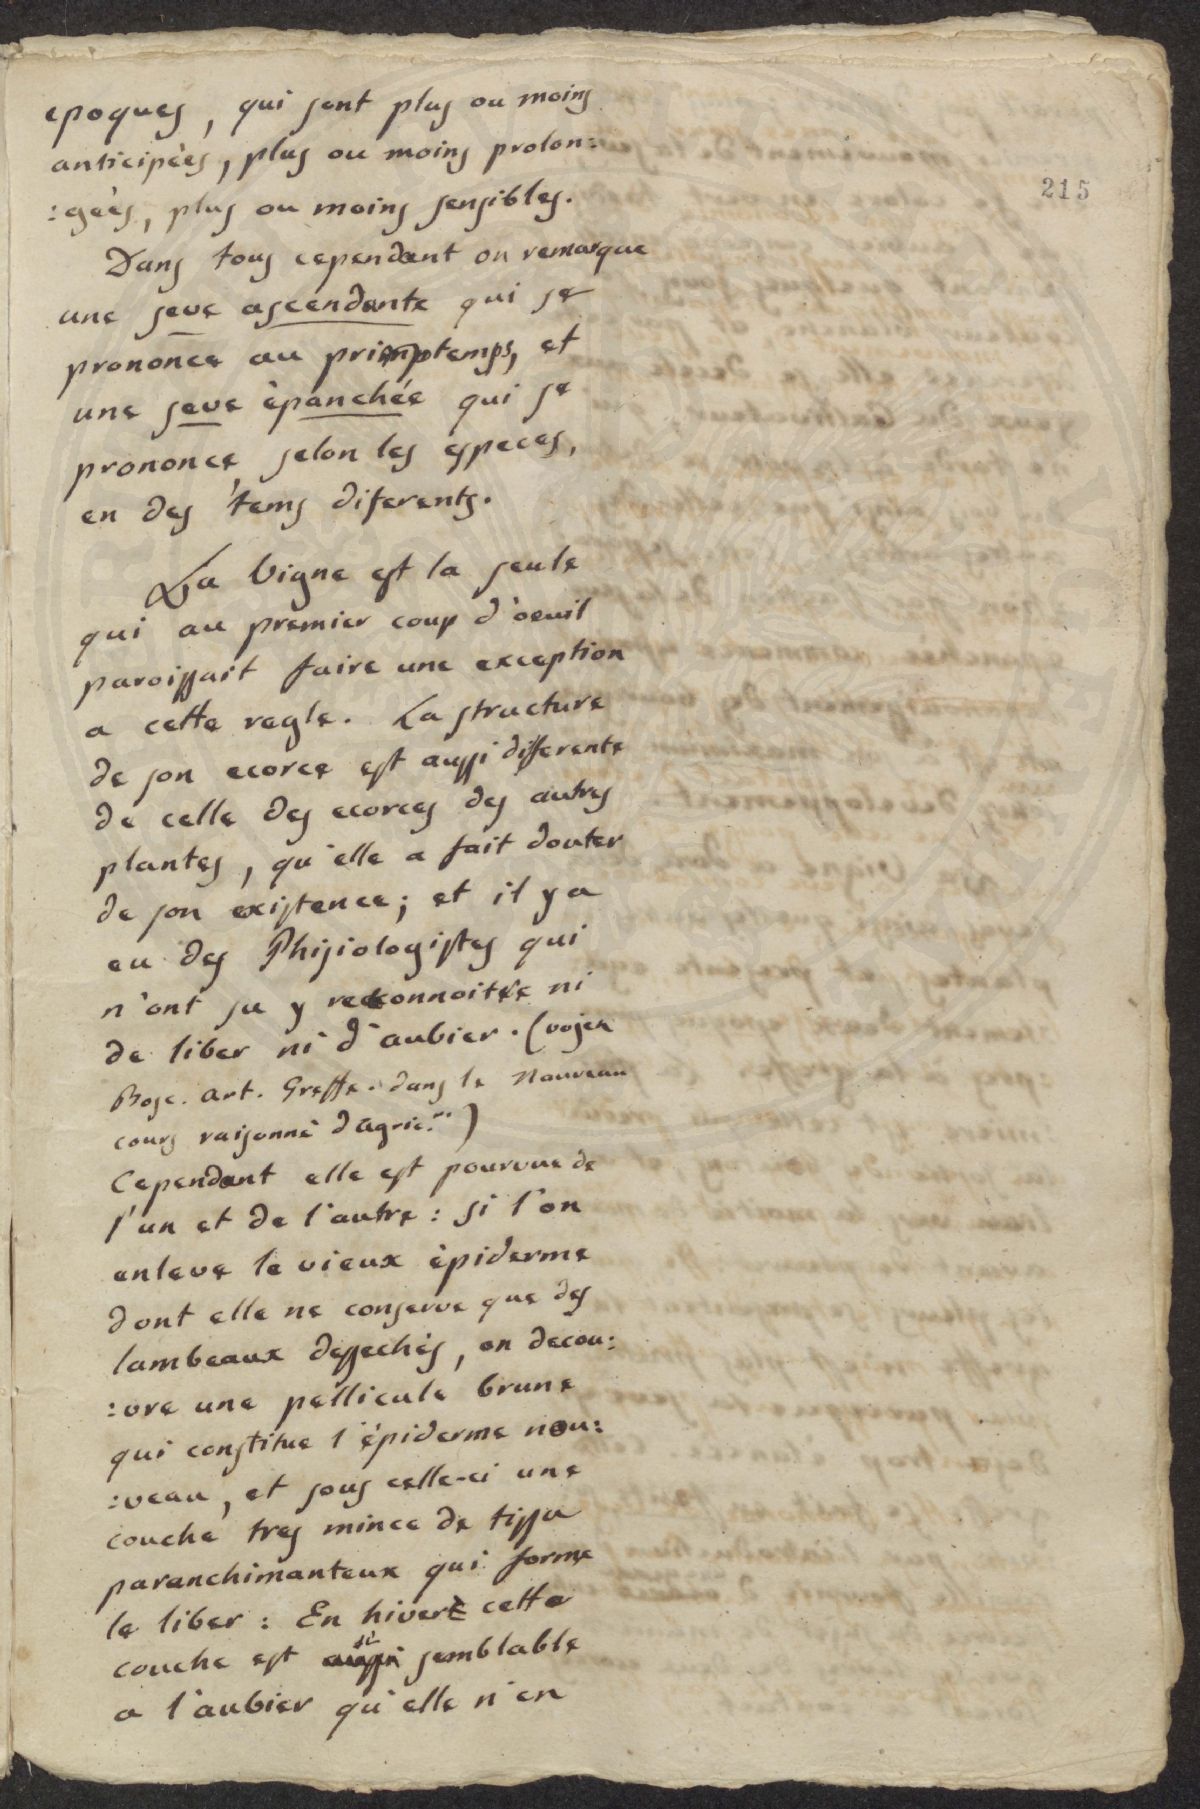 215
epoques, qui sont plus ou moins
anticipèes, plus ou moins prolon:
:gèes, plus ou moins sensibles.
Dans tous cependant on remarque
une seve ascendante qui se
prononce au printemps, et
une seve èpanchée qui se
prononce, selon les especes,
en des tems diferents.
La Vigne est la seule
qui au premier coup d'oeuil
paroissait faire une exception
a cette regle. La structure
de son ecorce est aussi differente
de celle des ecorces des autres
plantes, qu'elle a fait douter
de son existence; et il y a
eu des Phisiologistes qui
n'ont su y reconnoitre ni
de liber ni d'aubier. (vojez
Bosc. art. Greffe. dans le Nouveau
cours raisonnè d'agric.re)
Cependant elle est pourvue de
l'un et de l'autre: si l'on
enleve le vieux èpiderme
dont elle ne conserve que des
lambeaux dessechès, on decou:
:vre une pellicule brune
qui constitue l'èpiderme nou:
:veau, et sous celle-ci une
couche tres mince de tissu
paranchimanteux qui forme
le liber: En hiver cette
couche est si semblable
a l'aubier qu'elle n'en